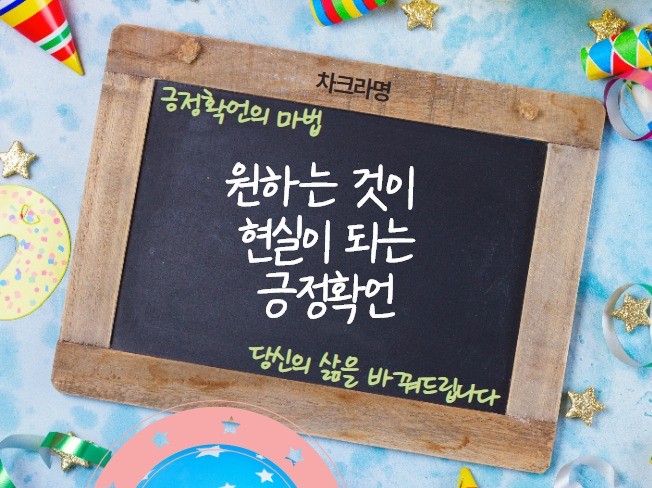 차크라명
긍정확언의 마법
원하는 것이
현실이 되는
긍정확언
당신의 삶을 바꿔드립니다